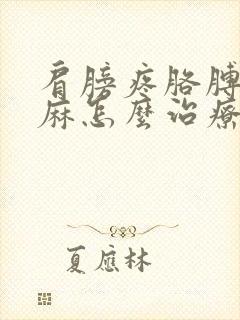 肩膀疼胳膊
麻怎麼治療
夏應林